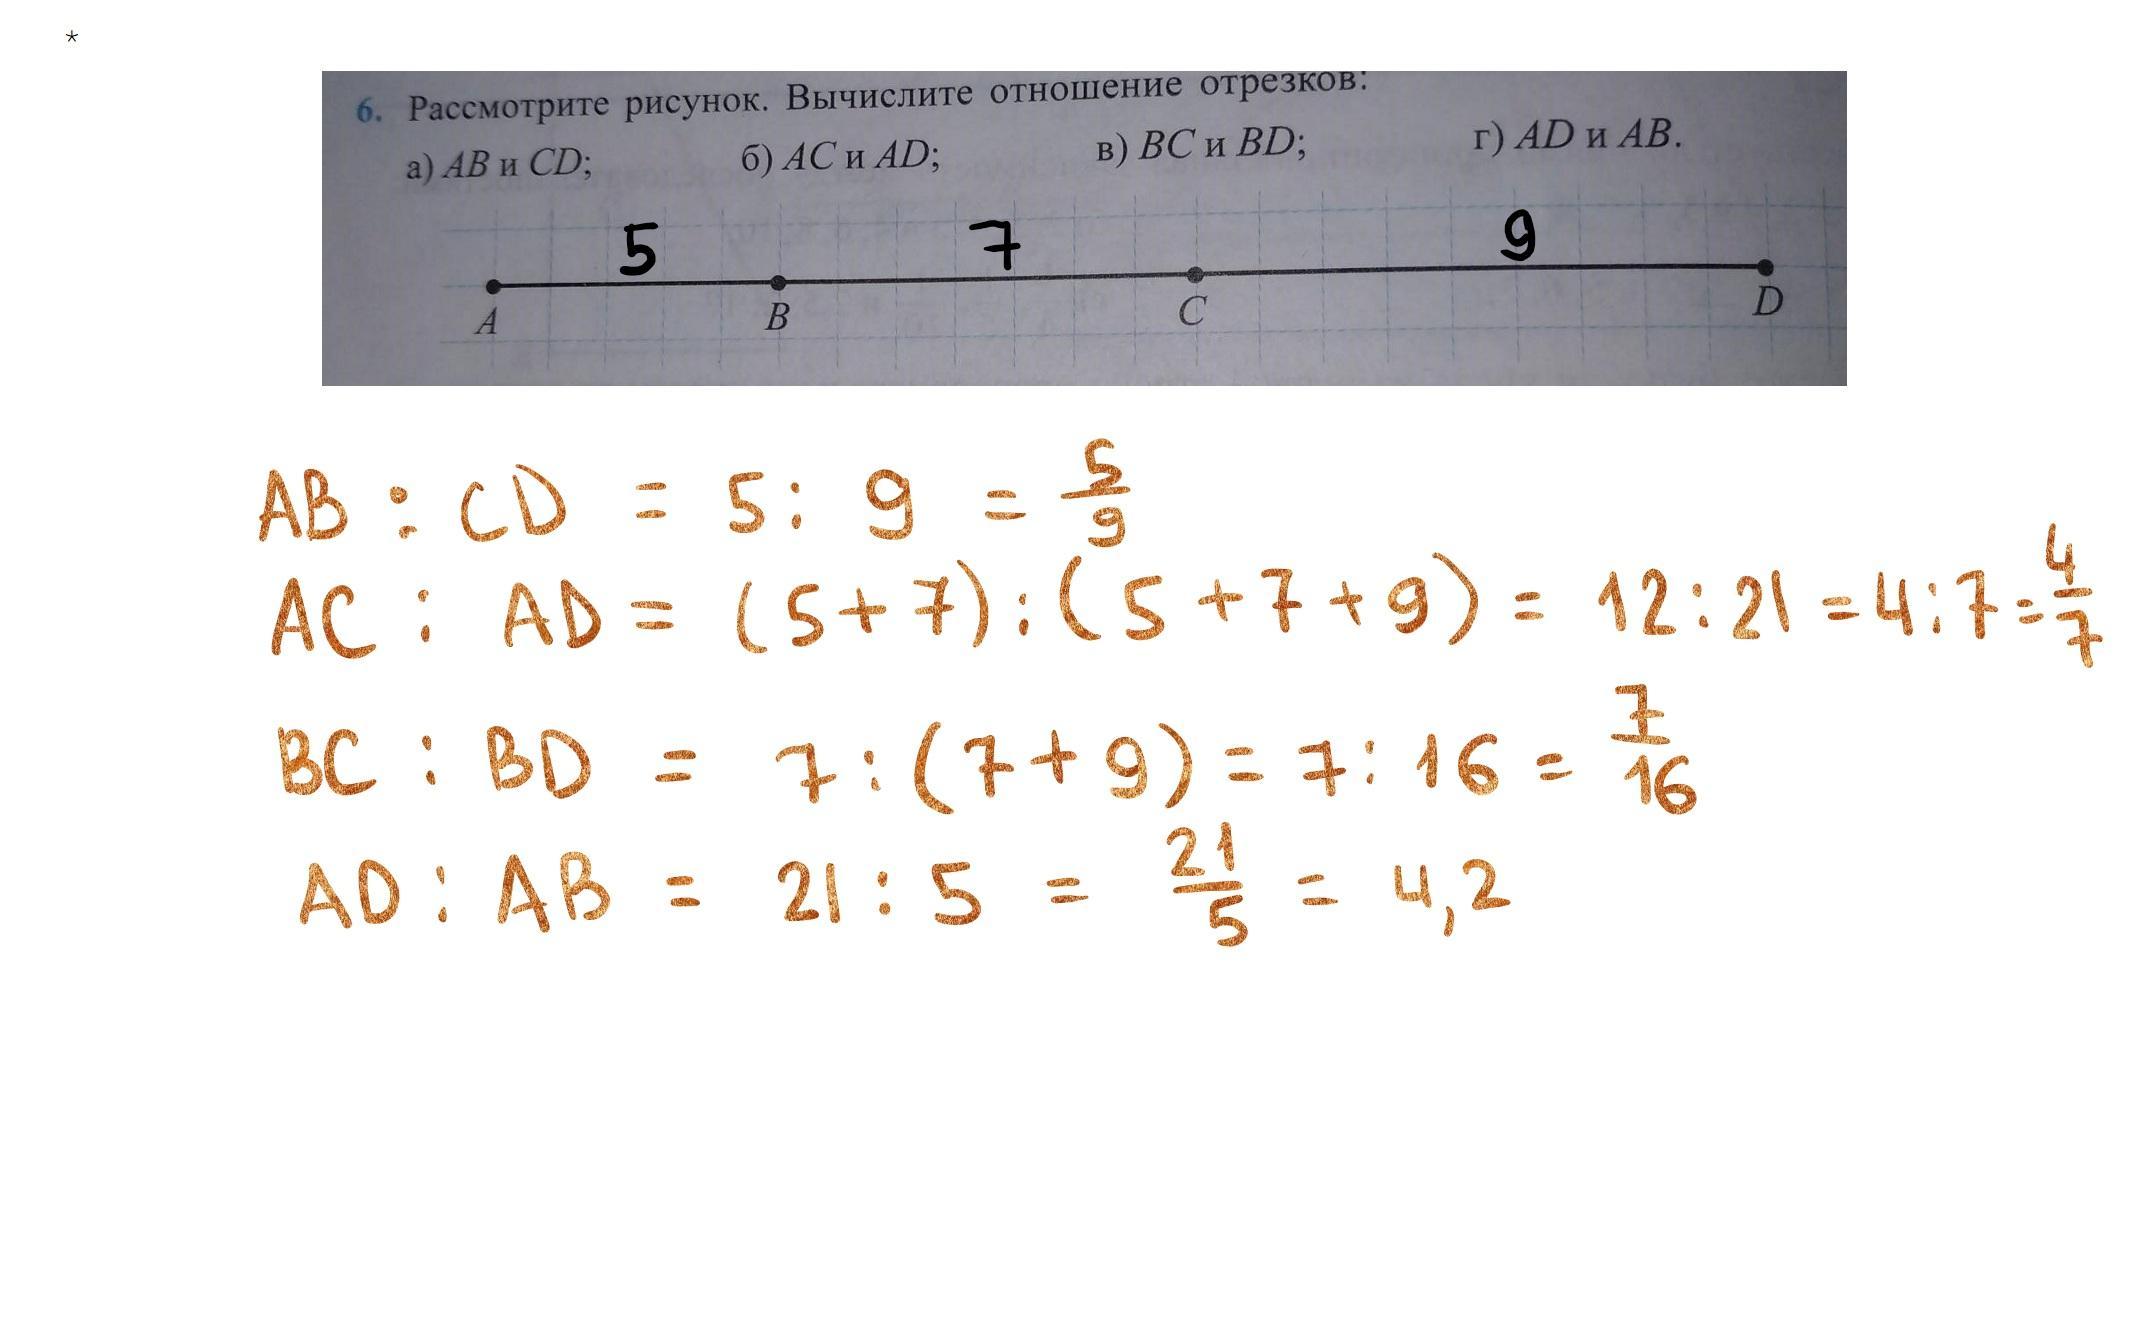 *
6. Рассмотрите рисунок. Вычислите отношение отрезков:
а) AB и CD; б) AC и AD; в) BC и BD; г) AD и AB.
5 7 9
A B C D
AB : CD = 5 : 9 = 5/9
AC : AD = (5+7) : (5+7+9) = 12:21 = 4:7 = 4/7
BC : BD = 7 : (7+9) = 7 : 16 = 7/16
AD : AB = 21 : 5 = 21/5 = 4,2